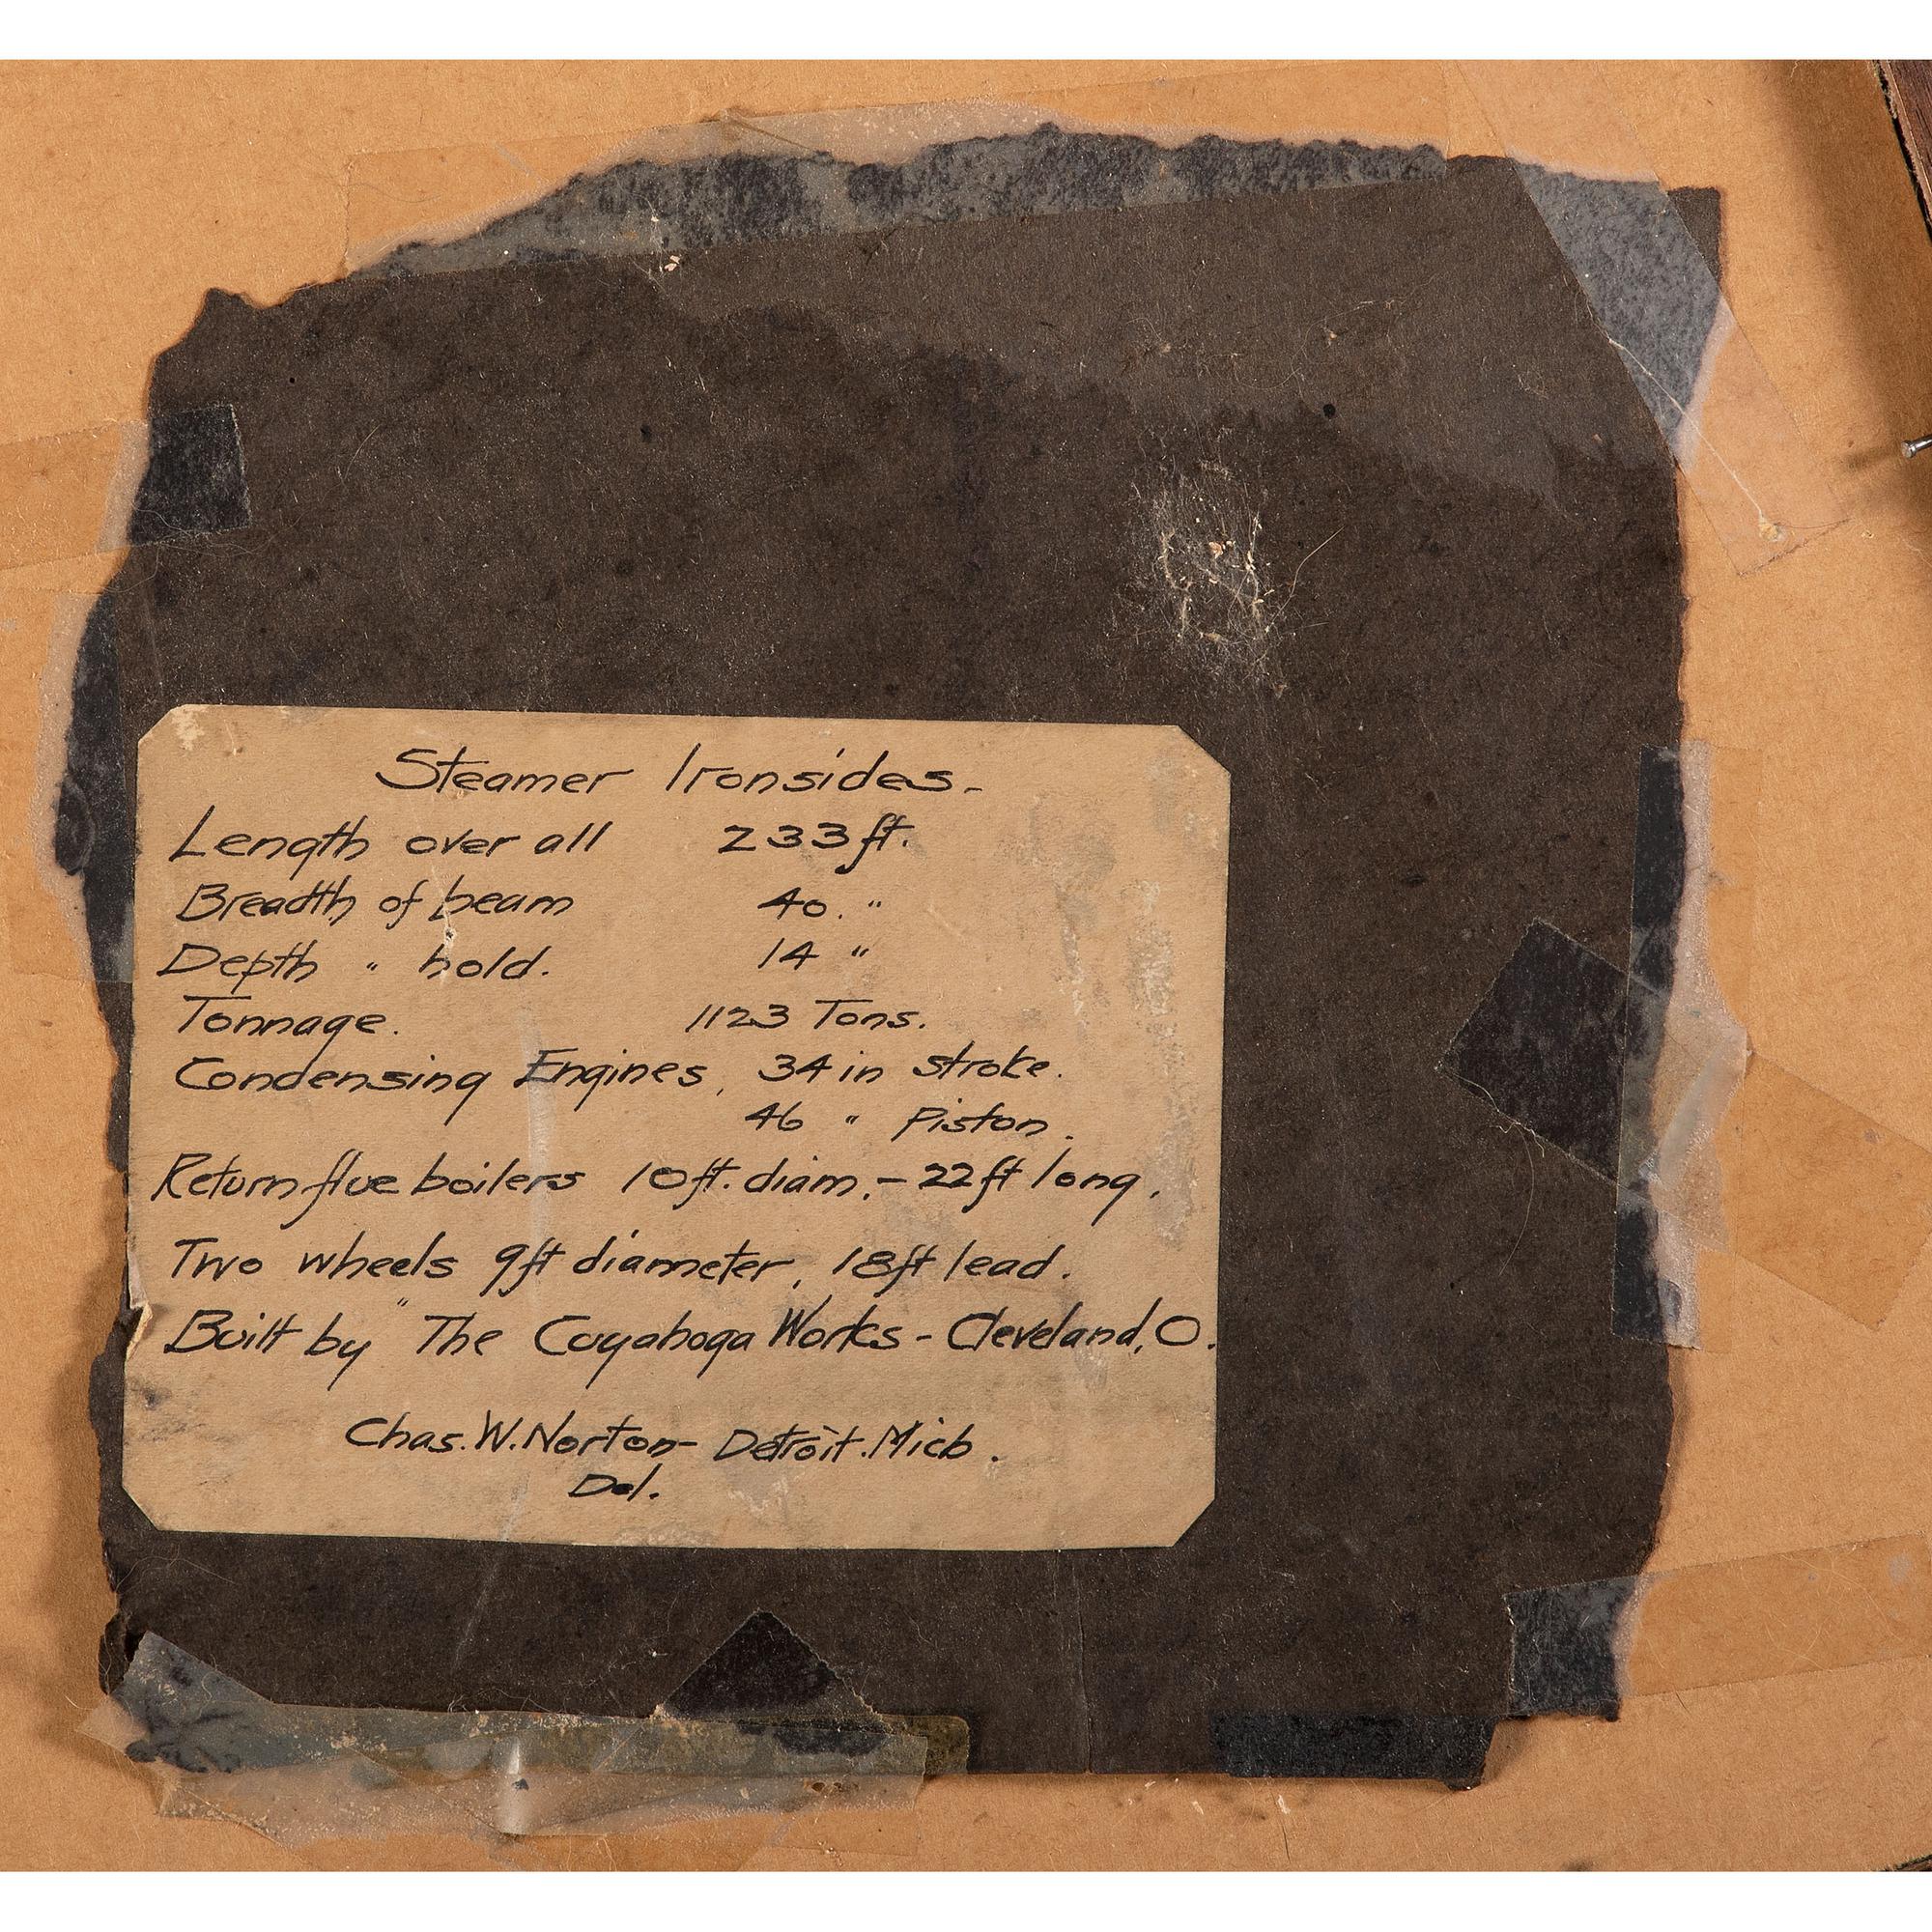 Steamer Ironsides.
Length over all 233 ft.
Breadth of beam 40. "
Depth " hold. 14 "
Tonnage. 1123 Tons.
Condensing Engines, 34 in stroke.
46 " Piston.
Return flue boilers 10 ft. diam. - 22 ft long.
Two wheels 9 ft diameter, 18 ft lead.
Built by " The Cuyahoga Works - Cleveland, O.
Chas. W. Norton - Detroit. Mich.
Del.